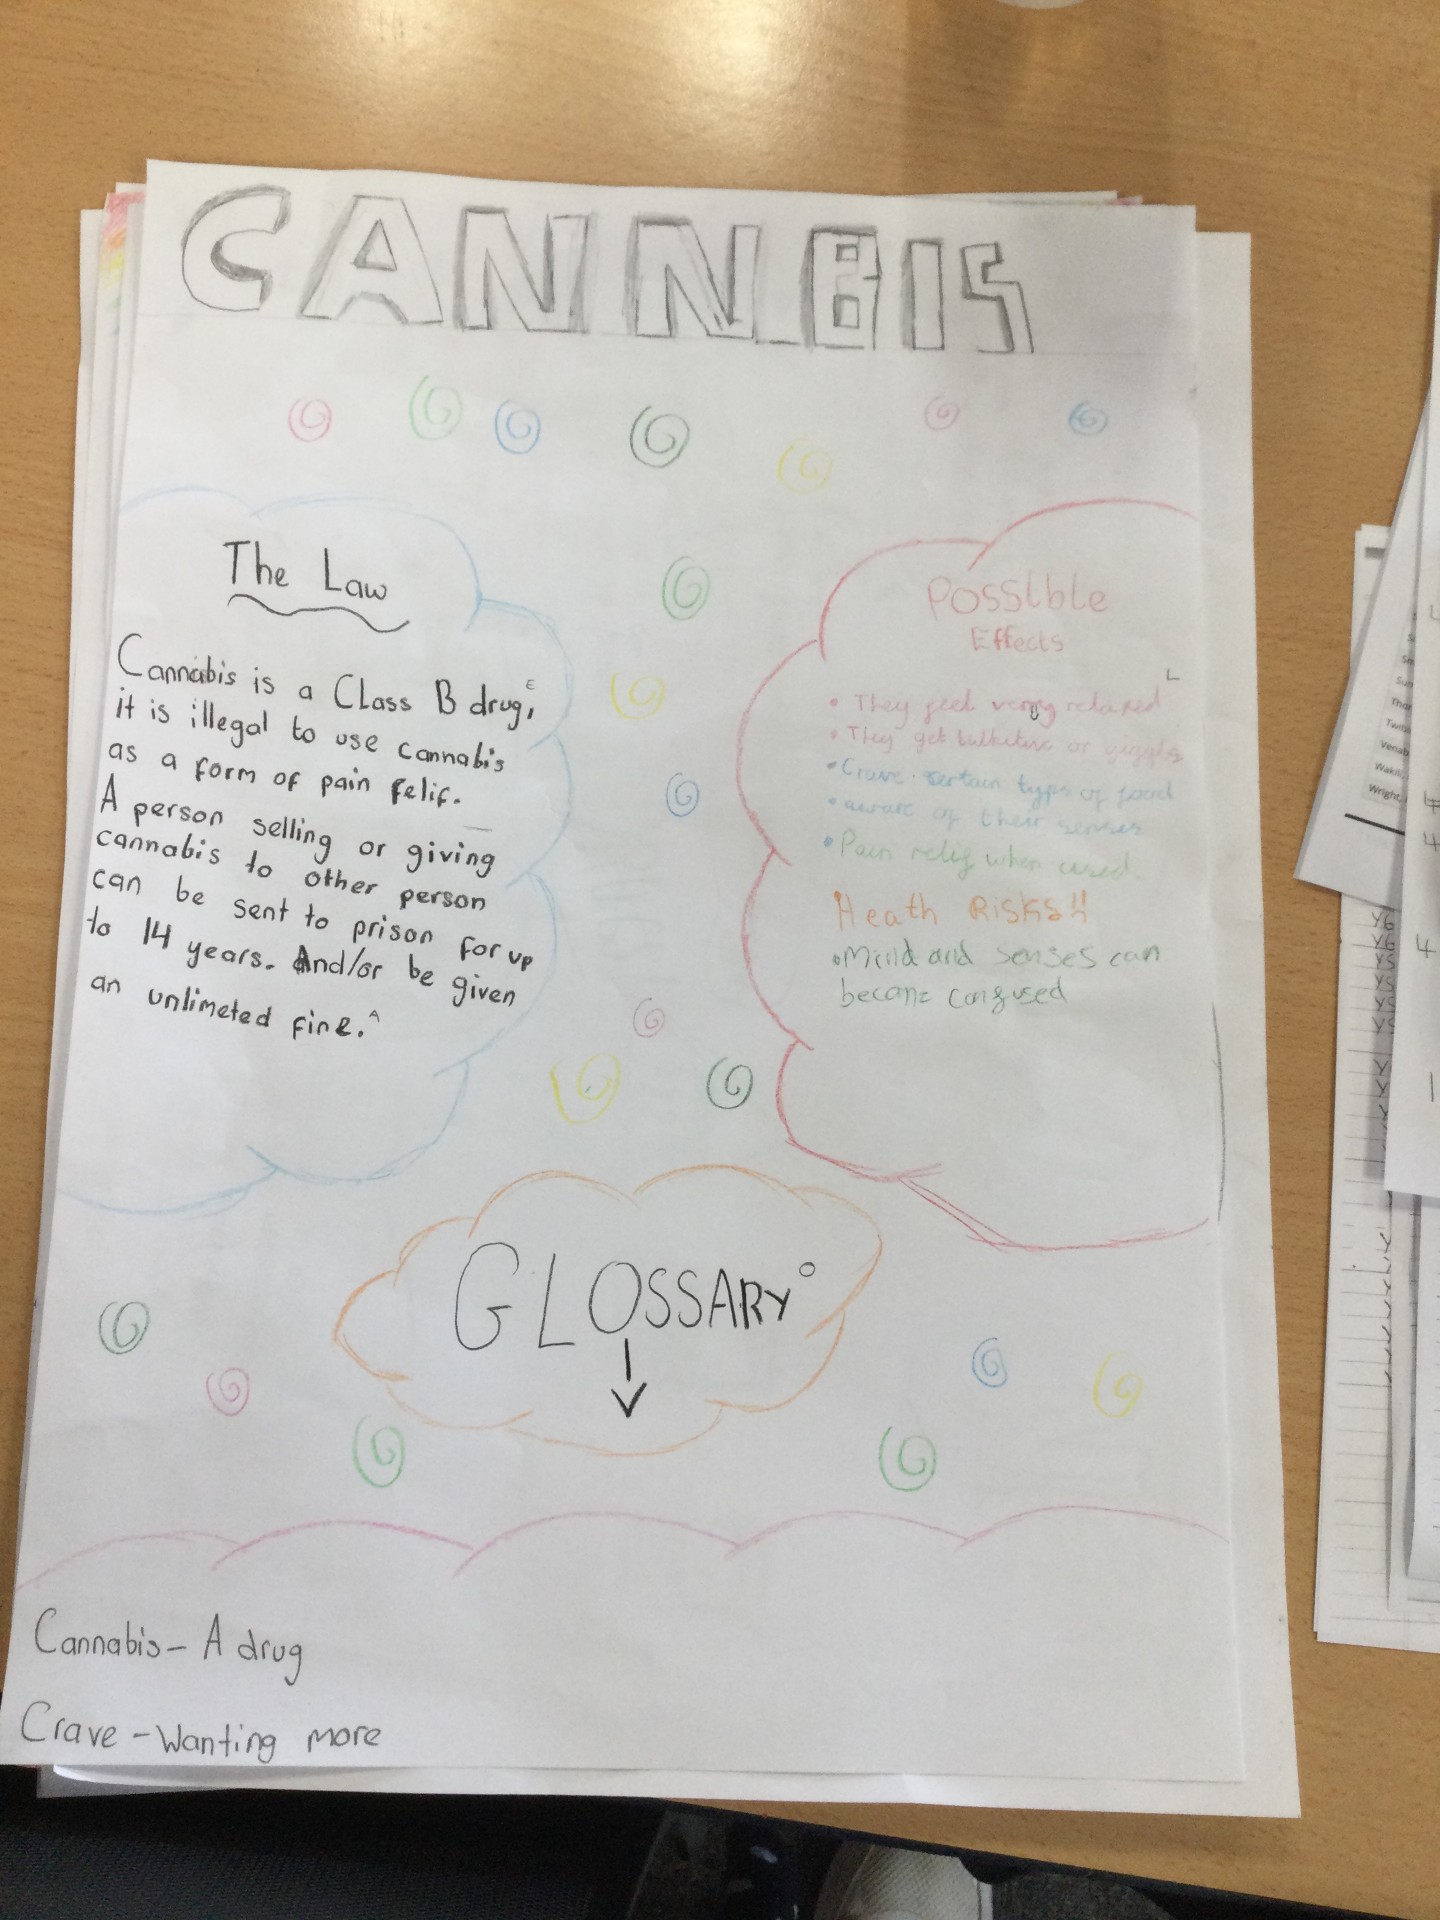 CANNBIS
The Law
Cannabis is a Class B drug, E
it is illegal to use cannabis
as a form of pain relif.
A person selling or giving
cannabis to other person
can be sent to prison for up
to 14 years. And/or be given
an unlimeted fine. A
Possible
Effects
L
• They feel very relaxed
• They get talketive or giggle
• Crave certain types of food
• aware of their senses
• Pain relif when used.
Heath Risks!!
• Mind and senses can
become confused
GLOSSARY O
Cannabis - A drug
Crave - Wanting more
Thor
Venab
Wright,